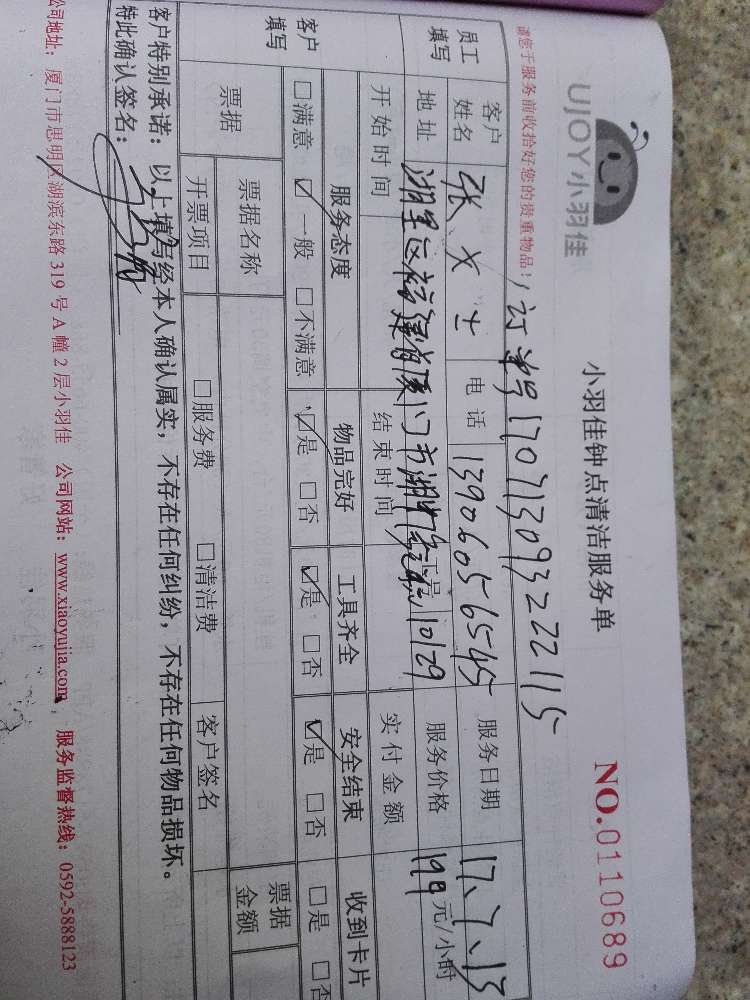 UJOY小羽佳
小羽佳钟点清洁服务单
NO.0110689
请您于服务前收拾好您的贵重物品!
订单号170713093222115
员工填写 客户姓名 张女士 电话 13906056545 服务日期 17.7.13
地址 湖里区福建省厦门市湖里 10129 服务价格 198元/小时
开始时间 结束时间 实付金额
客户填写 服务态度 物品完好 工具齐全 安全结束 收到卡片
□满意 ☑一般 □不满意 ☑是 □否 ☑是 □否 ☑是 □否 □是 □否
票据 票据名称 票据金额
开票项目 □服务费 □清洁费 客户签名
客户特别承诺:以上填写经本人确认属实,不存在任何纠纷,不存在任何物品损坏。
特此确认签名:
公司地址:厦门市思明区湖滨东路319号A幢2层小羽佳 公司网站:www.xiaoyujia.com 服务监督热线:0592-5888123